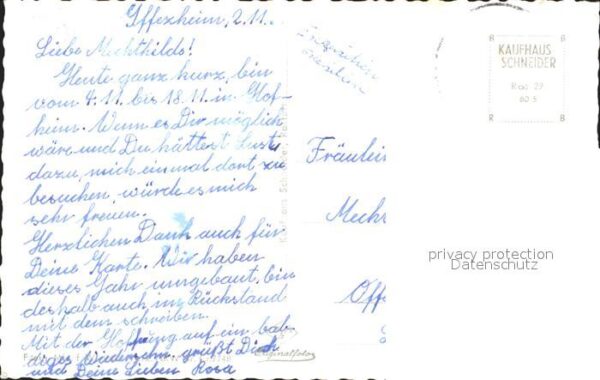 Iffezheim, 2.11.
Liebe Mechthilde!
Heute ganz kurz, bin
vom 4.11. bis 18.11. in Hof-
heim. Wenn es Dir möglich
wäre und Du hättest Lust
dazu, mich einmal dort zu
besuchen, würde es mich
sehr freuen.
Herzlichen Dank auch für
Deine Karte. Wir haben
dieses Jahr umgebaut, bin
deshalb auch im Rückstand
mit dem schreiben.
Mit der Hoffnung auf ein bal-
diges Wiedersehn grüßt Dich
und Deine Lieben Rosa
KAUFHAUS
SCHNEIDER
R 60 5
Fräulein
Mechr
Offe
privacy protection
Datenschutz
Originalfoto